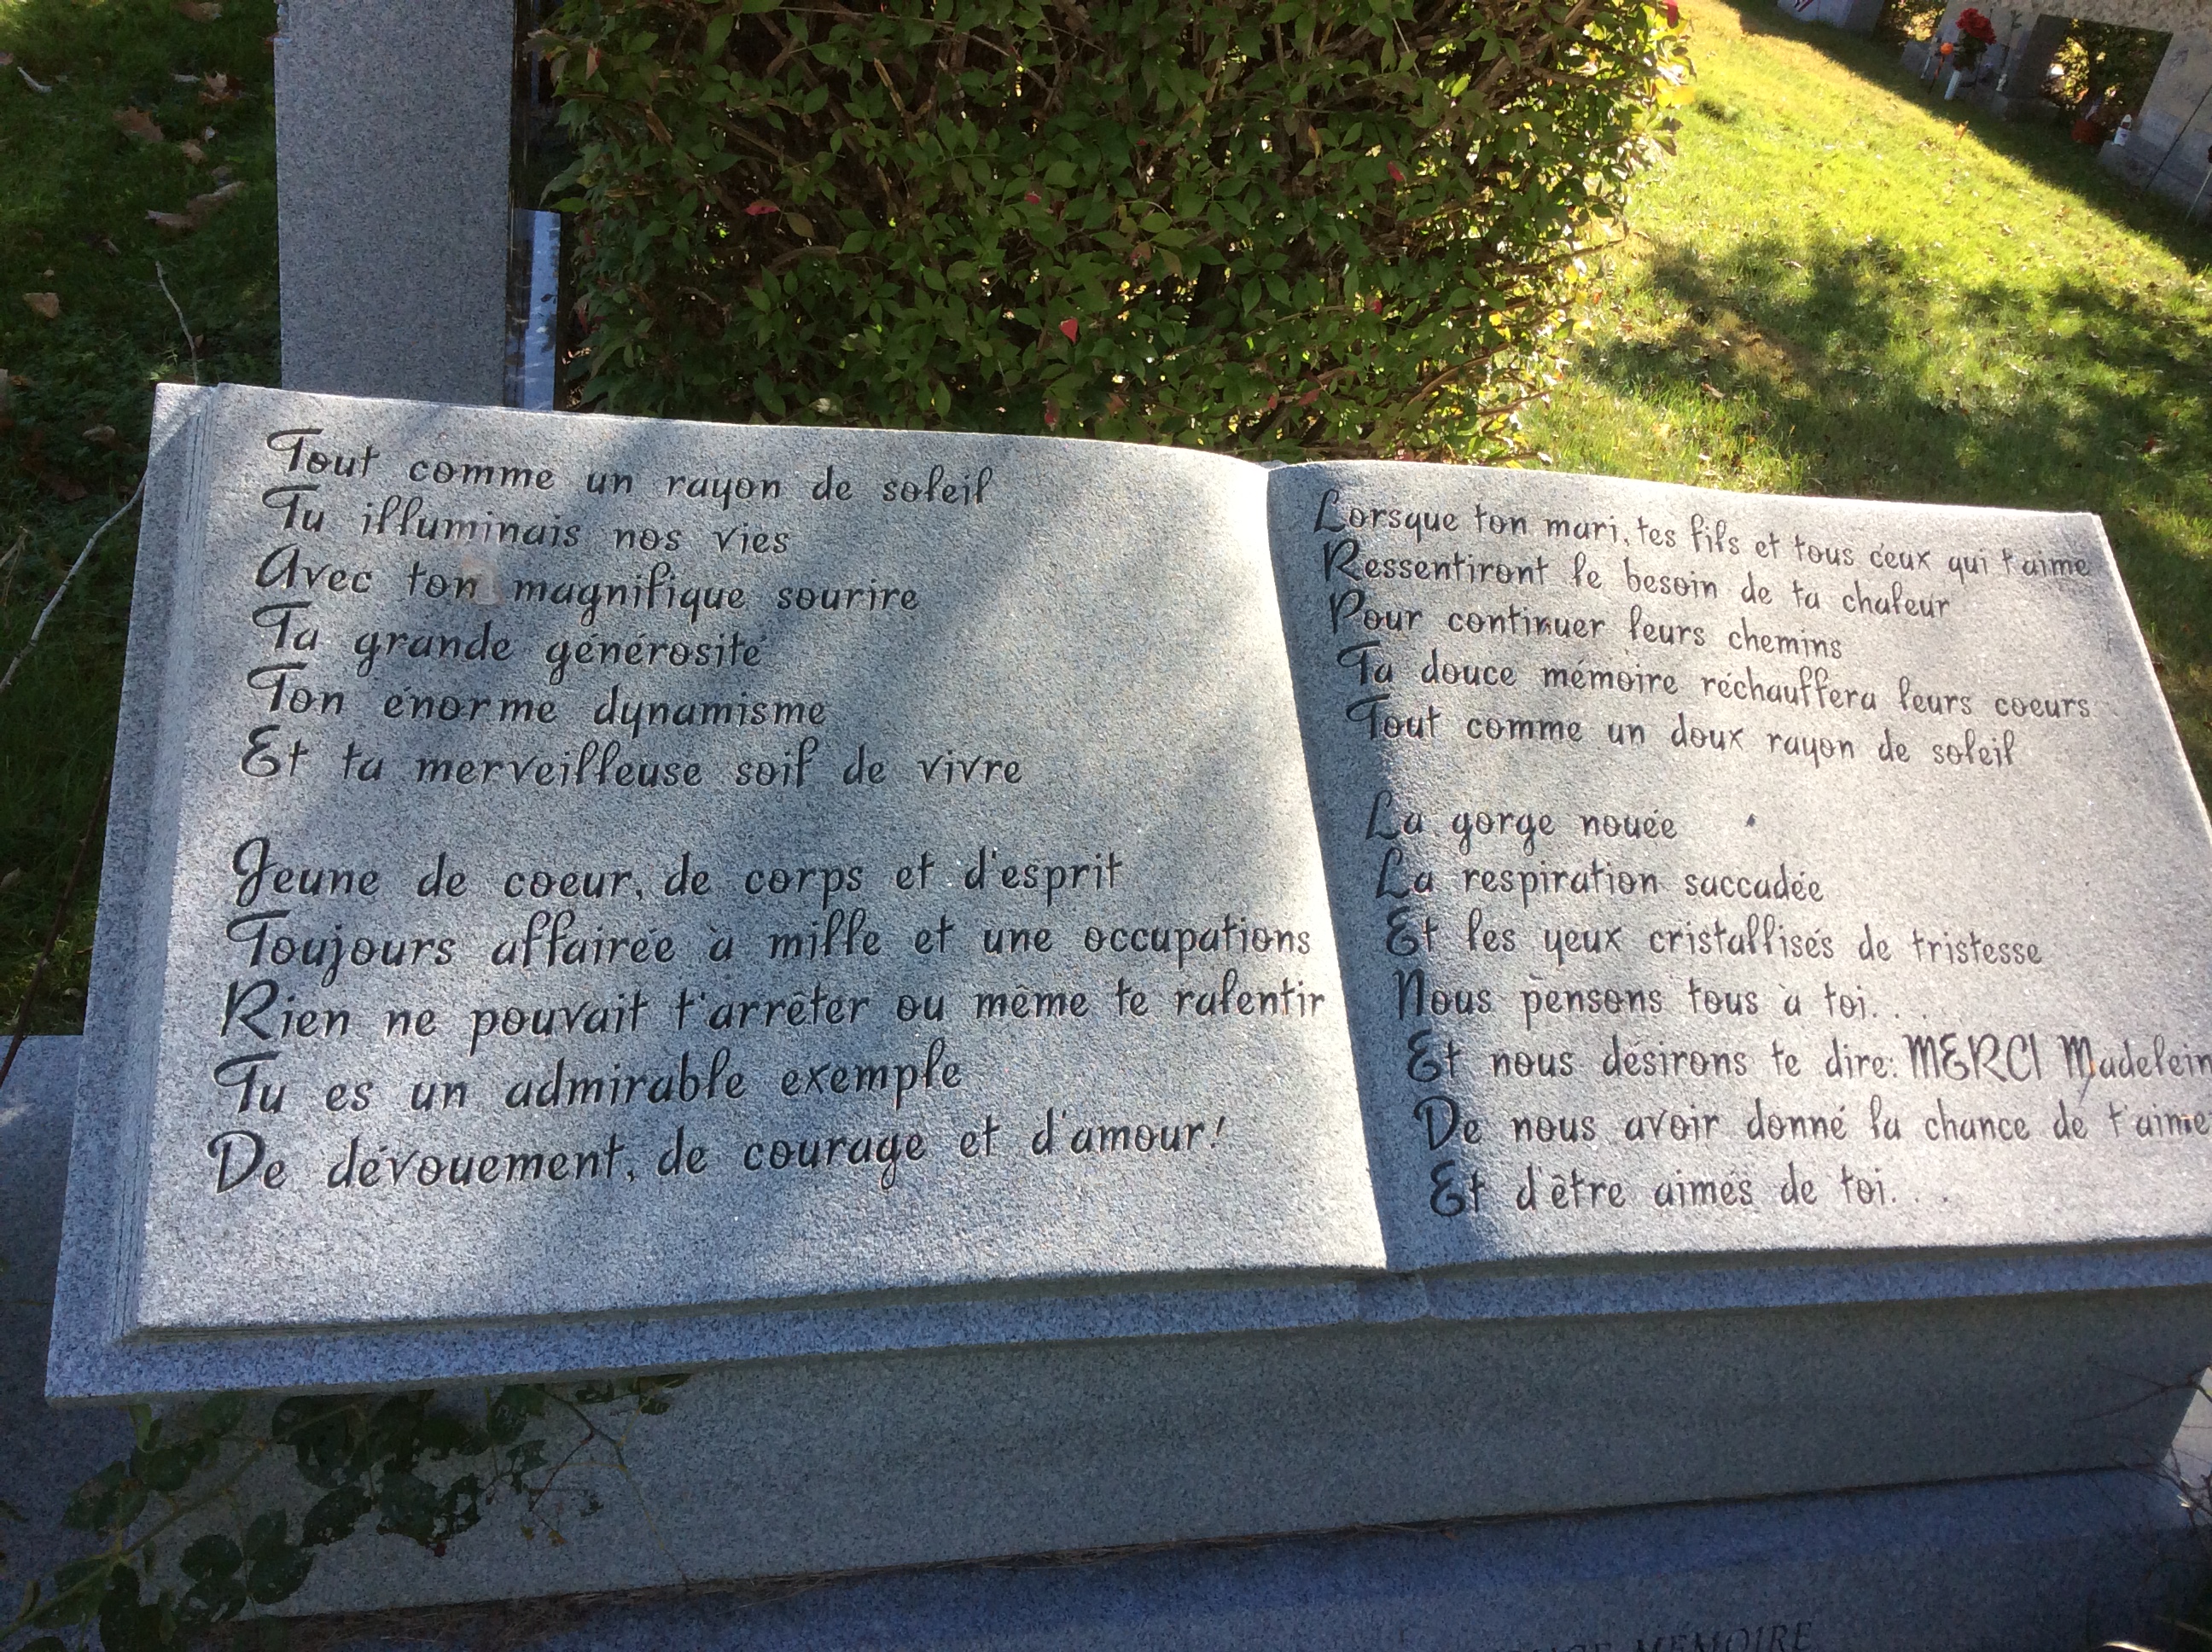 Tout comme un rayon de soleil
Tu illuminais nos vies
Avec ton magnifique sourire
Ta grande générosité
Ton énorme dynamisme
Et ta merveilleuse soif de vivre
Jeune de coeur, de corps et d'esprit
Toujours affairée à mille et une occupations
Rien ne pouvait t'arrêter ou même te ralentir
Tu es un admirable exemple
De dévouement, de courage et d'amour!
Lorsque ton mari, tes fils et tous ceux qui t'aime
Ressentiront le besoin de ta chaleur
Pour continuer leurs chemins
Ta douce mémoire réchauffera leurs coeurs
Tout comme un doux rayon de soleil
La gorge nouée
La respiration saccadée
Et les yeux cristallisés de tristesse
Nous pensons tous à toi...
Et nous désirons te dire: MERCI Madelein
De nous avoir donné la chance de t'aime
Et d'être aimés de toi...
MÉMOIRE